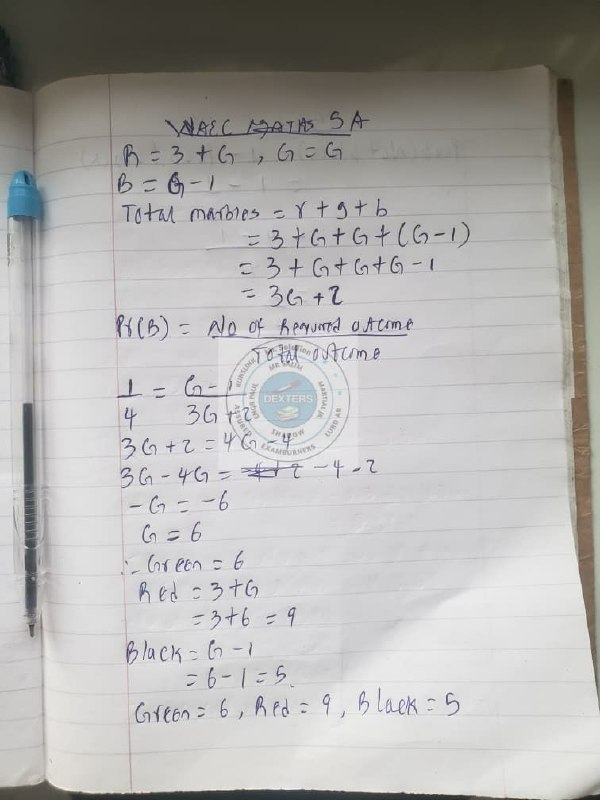 WAEC MATHS 5A
R = 3 + G , G = G
B = G - 1
Total marbles = r + g + b
= 3 + G + G + (G - 1)
= 3 + G + G + G - 1
= 3G + 2
Pr(B) = No of Required outcome
Total outcome
1 = G - 1
4 3G + 2
3G + 2 = 4G - 4
3G - 4G = - 4 - 2
- G = - 6
G = 6
∴ Green = 6
Red = 3 + G
= 3 + 6 = 9
Black = G - 1
= 6 - 1 = 5.
Green = 6, Red = 9, Black = 5
DEXTERS
EXAMBURNERS